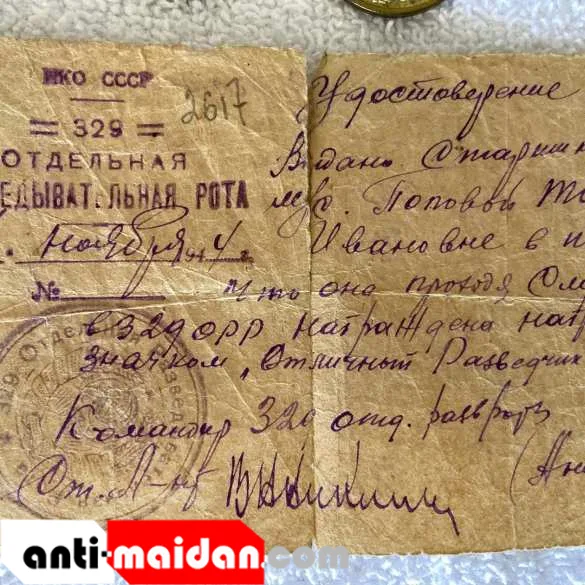 НКО СССР
= 329 =
ОТДЕЛЬНАЯ
ЕДЫВАТ.ЛЬНАЯ РОТА
2617
ноября 194 4 г.
№
Удостоверение
Выдано Старшин
м/с. Поповой
Ивановне в
что она проходя
в 329 орр награждена
значком „Отличный Разведчик
Командир 329 отд. разв роты
Ст. Л-нт
329 Отдел
anti-maidan.com